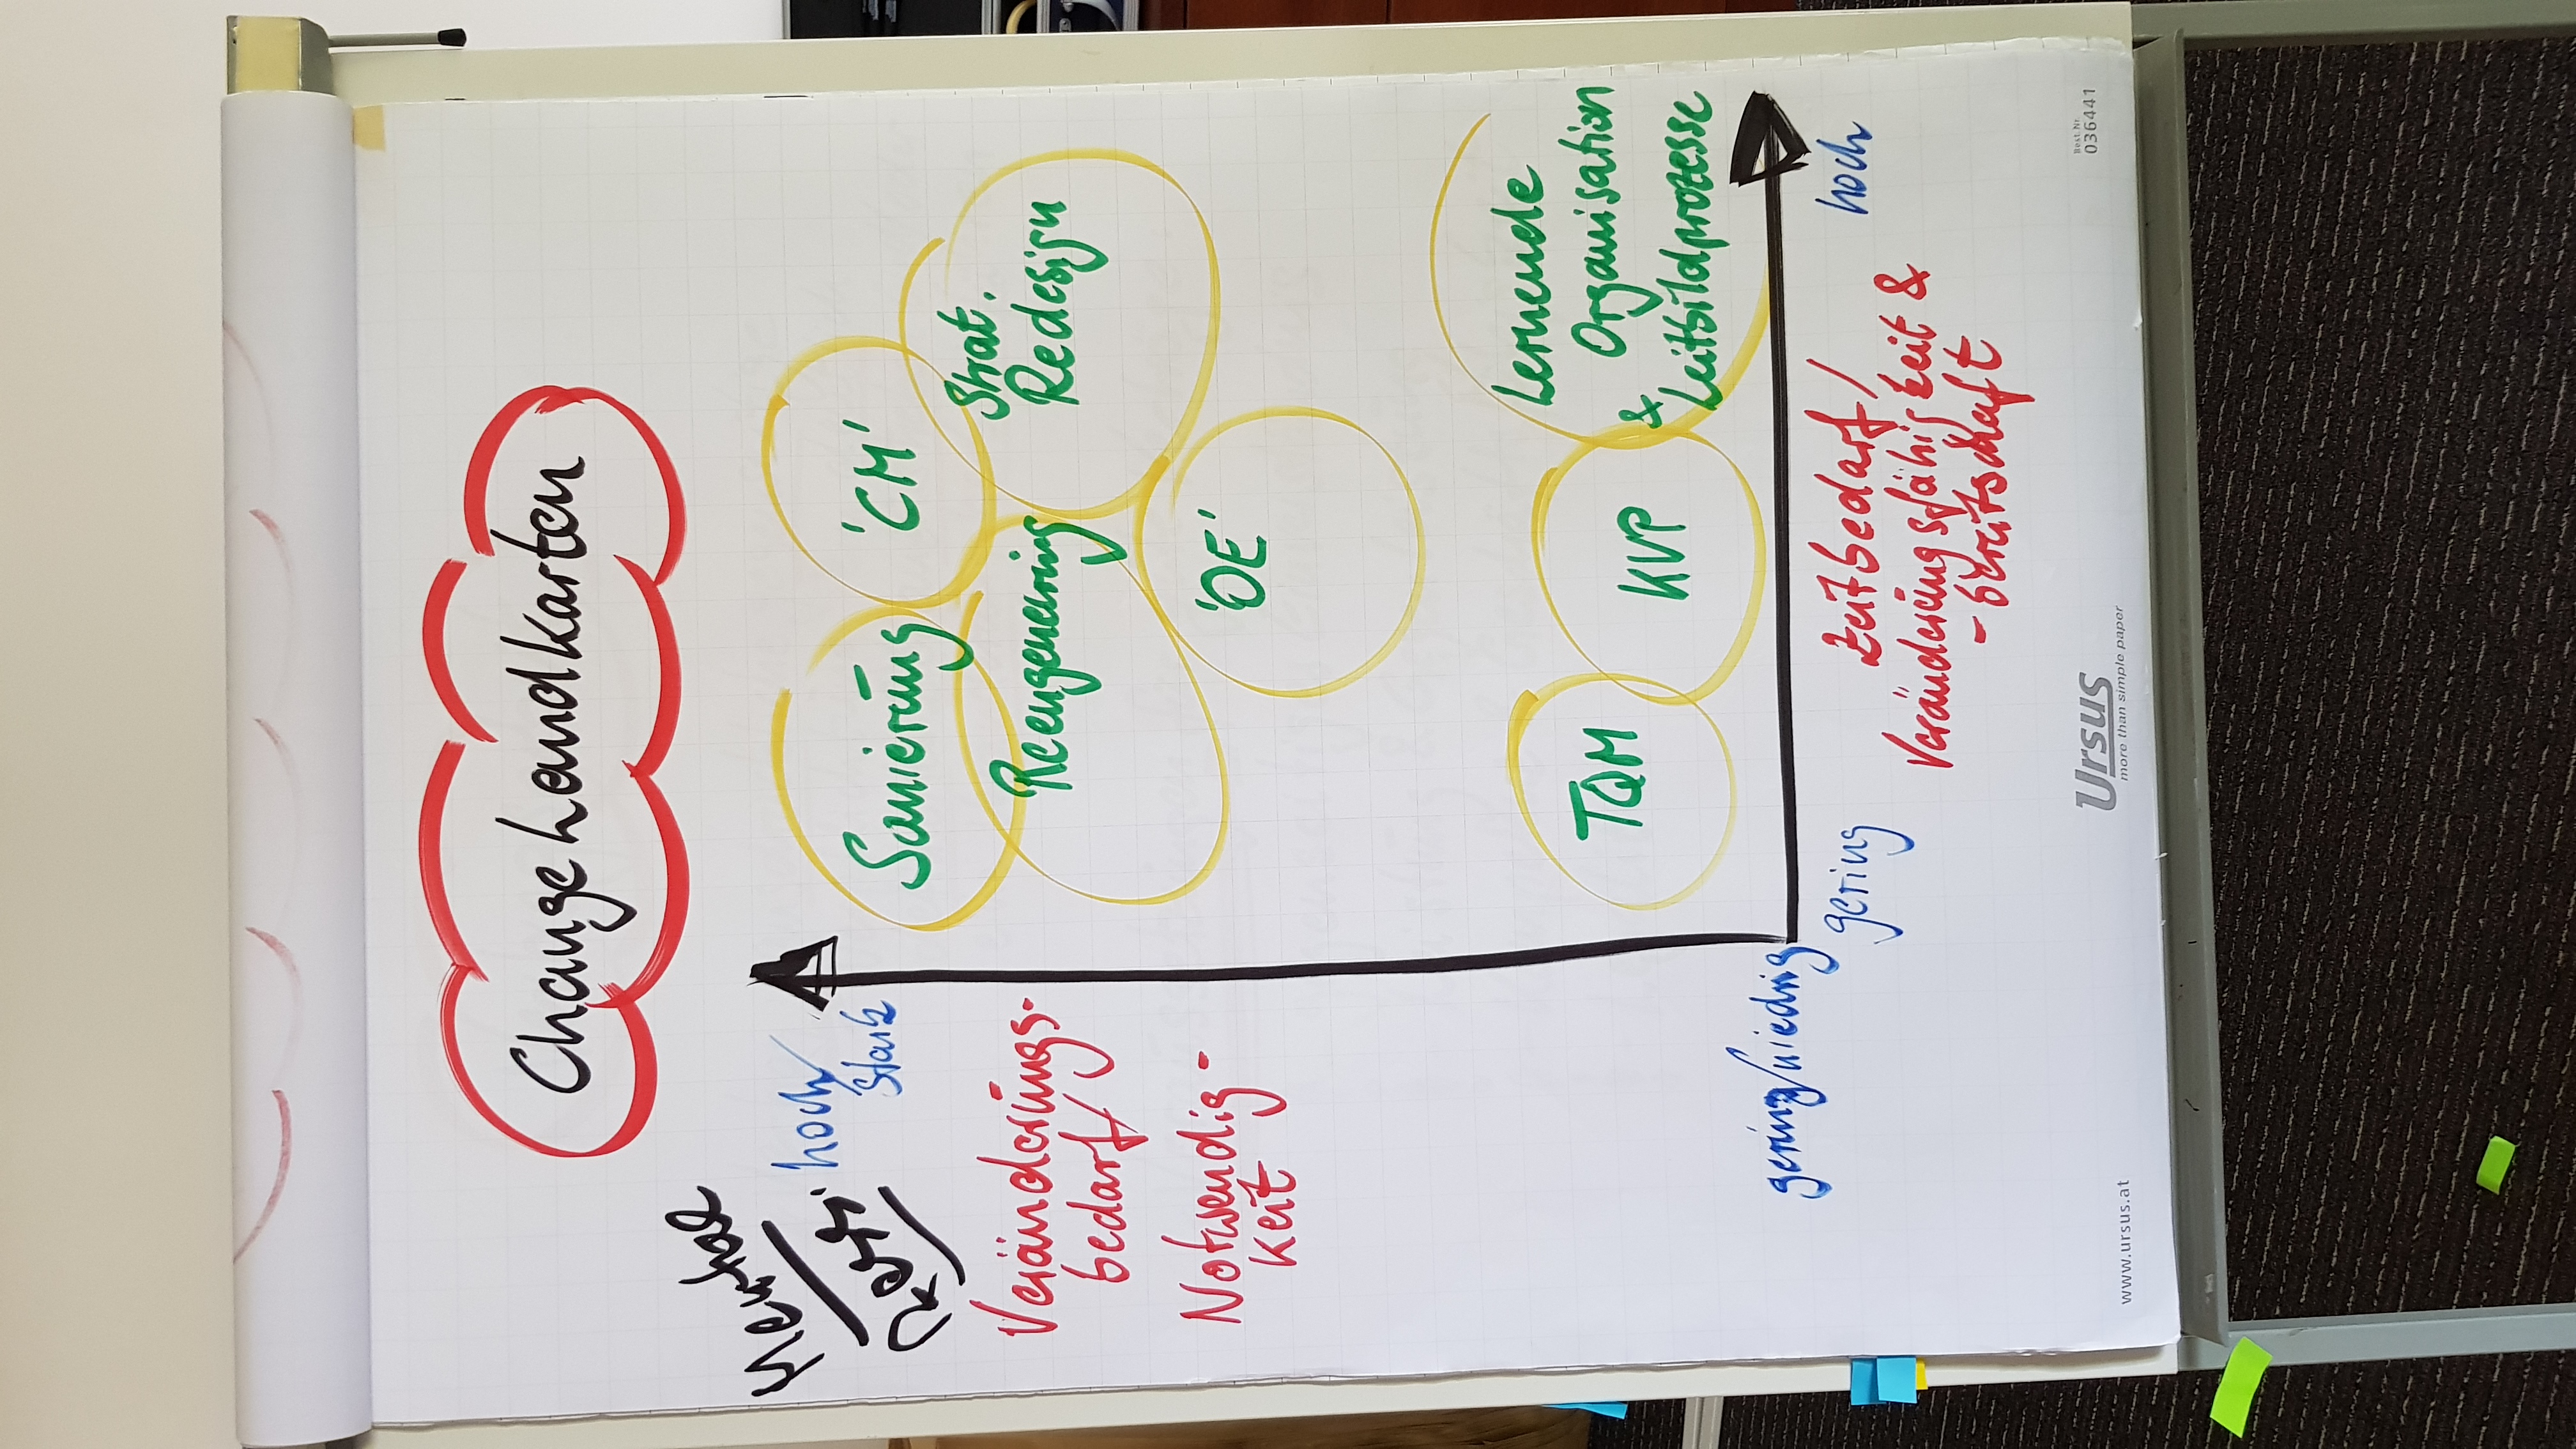 Change Landkarten
Mental
hoch/
stark
Veränderungs-
bedarf/
Notwendig-
keit
Sanierung
'CM'
Strat.
Redesign
Reengenering
'OE'
TQM
KVP
Lernende
Organisation
&
Leitbildprozesse
gering/niedrig
gering
hoch
Zeitbedarf/
Veränderungsfähigkeit &
-bereitschaft
www.ursus.at
Ursus
more than simple paper
Best. Nr.
036441